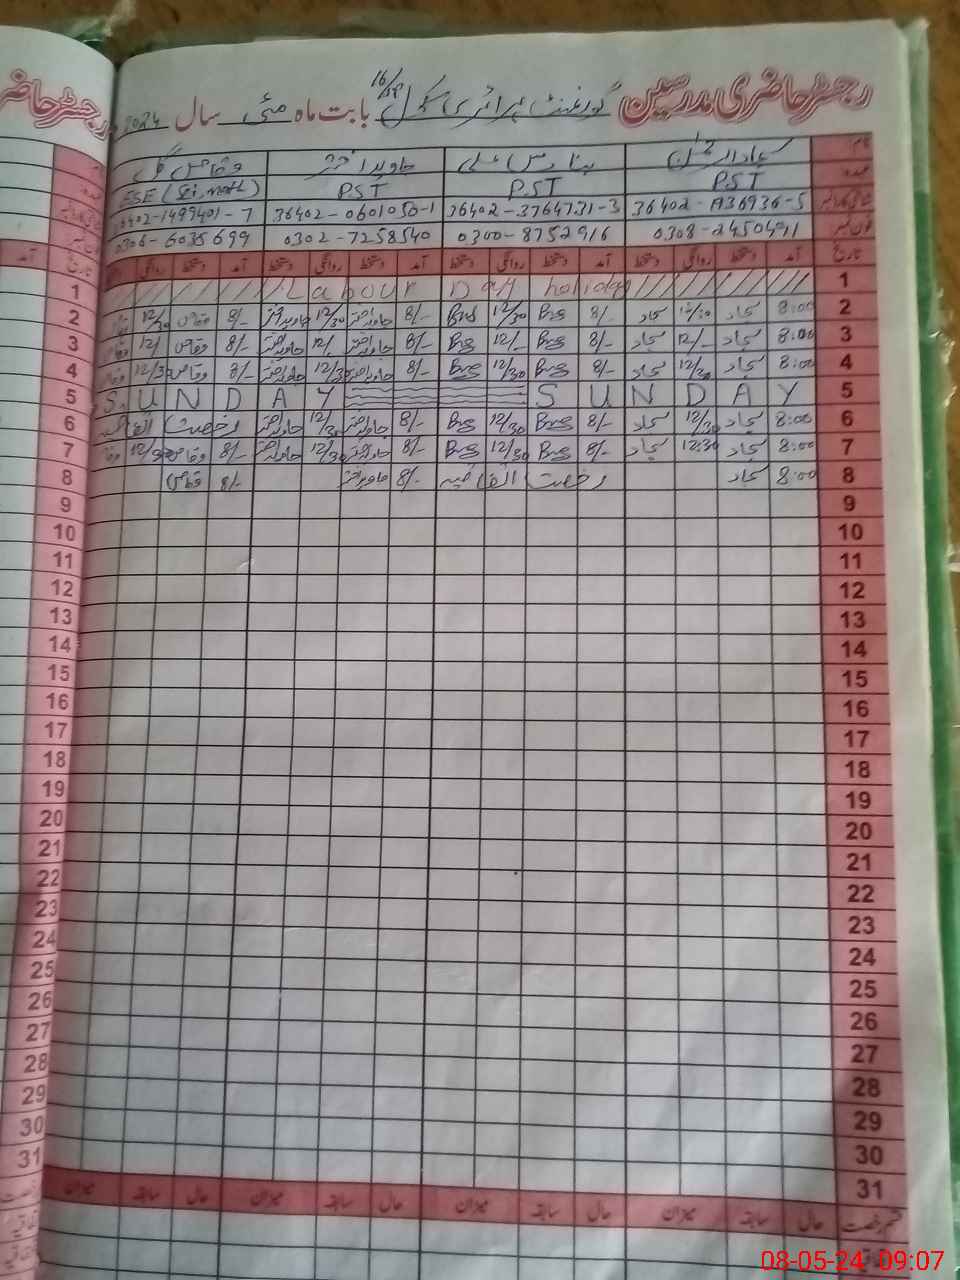 رجسٹر حاضری مدرسین گورنمنٹ پرائمری سکول 16/ بابت ماہ مئی سال 2024
نام سجاد الرحمٰن جاوید اختر وقاص گل
عہدہ PST PST PST ESE (Sci, math)
شناختی کارڈ نمبر 36402-3764731-3 36402-0601050-1
فون نمبر 0308-2450491 0300-8752916 0302-7258540 0306-6035699
تاریخ آمد دستخط روانگی دستخط آمد دستخط روانگی دستخط آمد دستخط روانگی دستخط آمد دستخط روانگی
1 Labour Day holiday
2 8:00 سجاد سجاد 8/- 12/30 8/- جاوید اختر 12/30 جاوید اختر 8/- وقاص 12/30
3 8:00 سجاد 12/- سجاد 8/- 12/- 8/- جاوید اختر 12/- جاوید اختر 8/- وقاص 12/
4 8:00 سجاد 12/30 سجاد 8/- 12/30 8/- جاوید اختر 12/30 جاوید اختر 8/- وقاص 12/3
5 SUNDAY SUNDAY
6 8:00 سجاد 12/30 سجاد 8/- 12/30 8/- جاوید اختر 12/30 جاوید اختر رخصت اتفاقیہ
7 8:00 سجاد 12:30 سجاد 8/- 12/30 8/- جاوید اختر 12/30 جاوید اختر 8/- وقاص 12/3
8 8:00 سجاد رخصت اتفاقیہ 8/- جاوید اختر 8/- وقاص
9
10
11
12
13
14
15
16
17
18
19
20
21
22
23
24
25
26
27
28
29
30
31
قسم رخصت حال سابقہ میزان حال سابقہ میزان حال سابقہ میزان حال سابقہ میزان
رجسٹر حاضر
تاریخ آمد
1
2
3
4
5
6
7
8
9
10
11
12
13
14
15
16
17
18
19
20
21
22
23
24
25
26
27
28
29
30
31
08-05-24 09:07